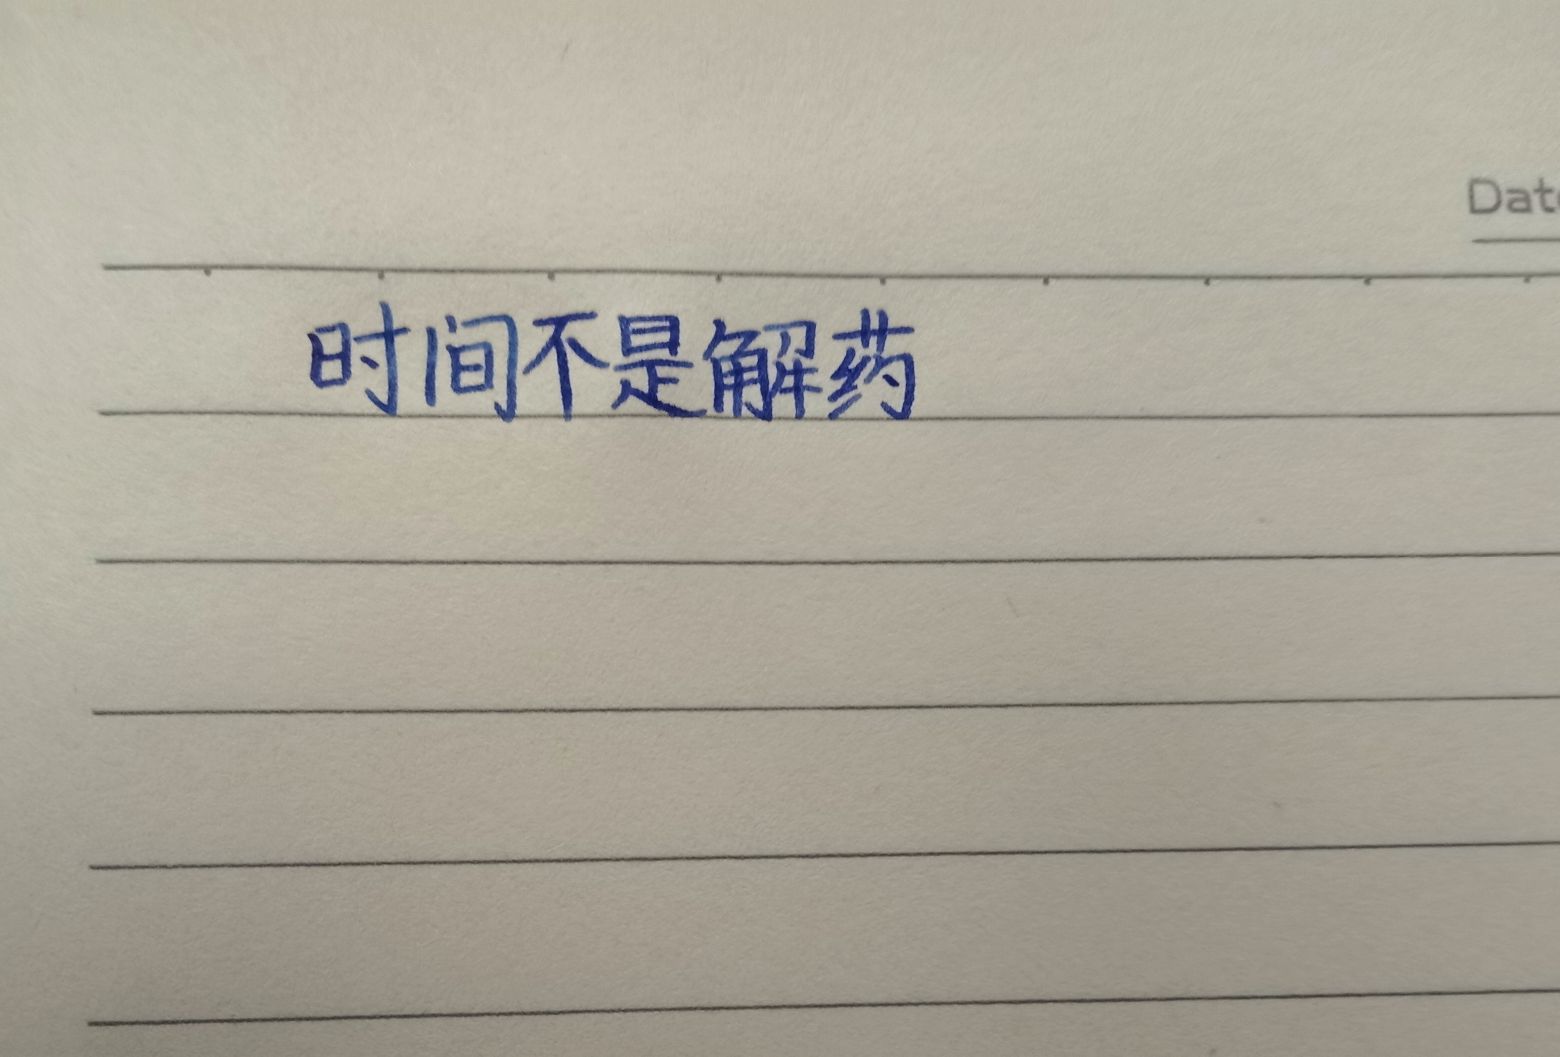 Dat
时间不是解药